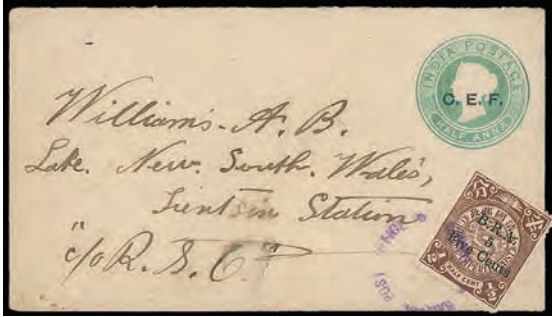 INDIA POSTAGE
C. E. F.
HALF ANNA
Williams. A. B.
Late. New. South. Wales,
Tientsin Station
"c/o R. S. O"
分
B. R. A.
5
Five Cents
HALF CENT
1/2
1/2